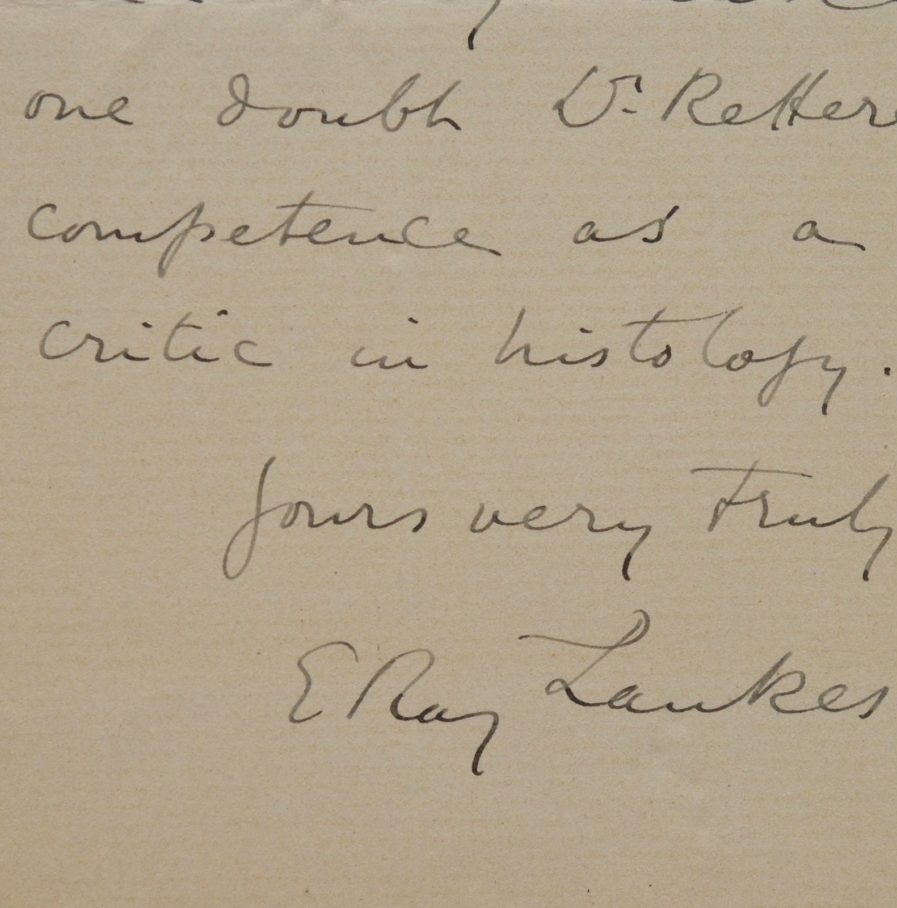 one doubt Dr. Retter
competence as a
critic in histology.
Yours very truly
E Ray Lankes